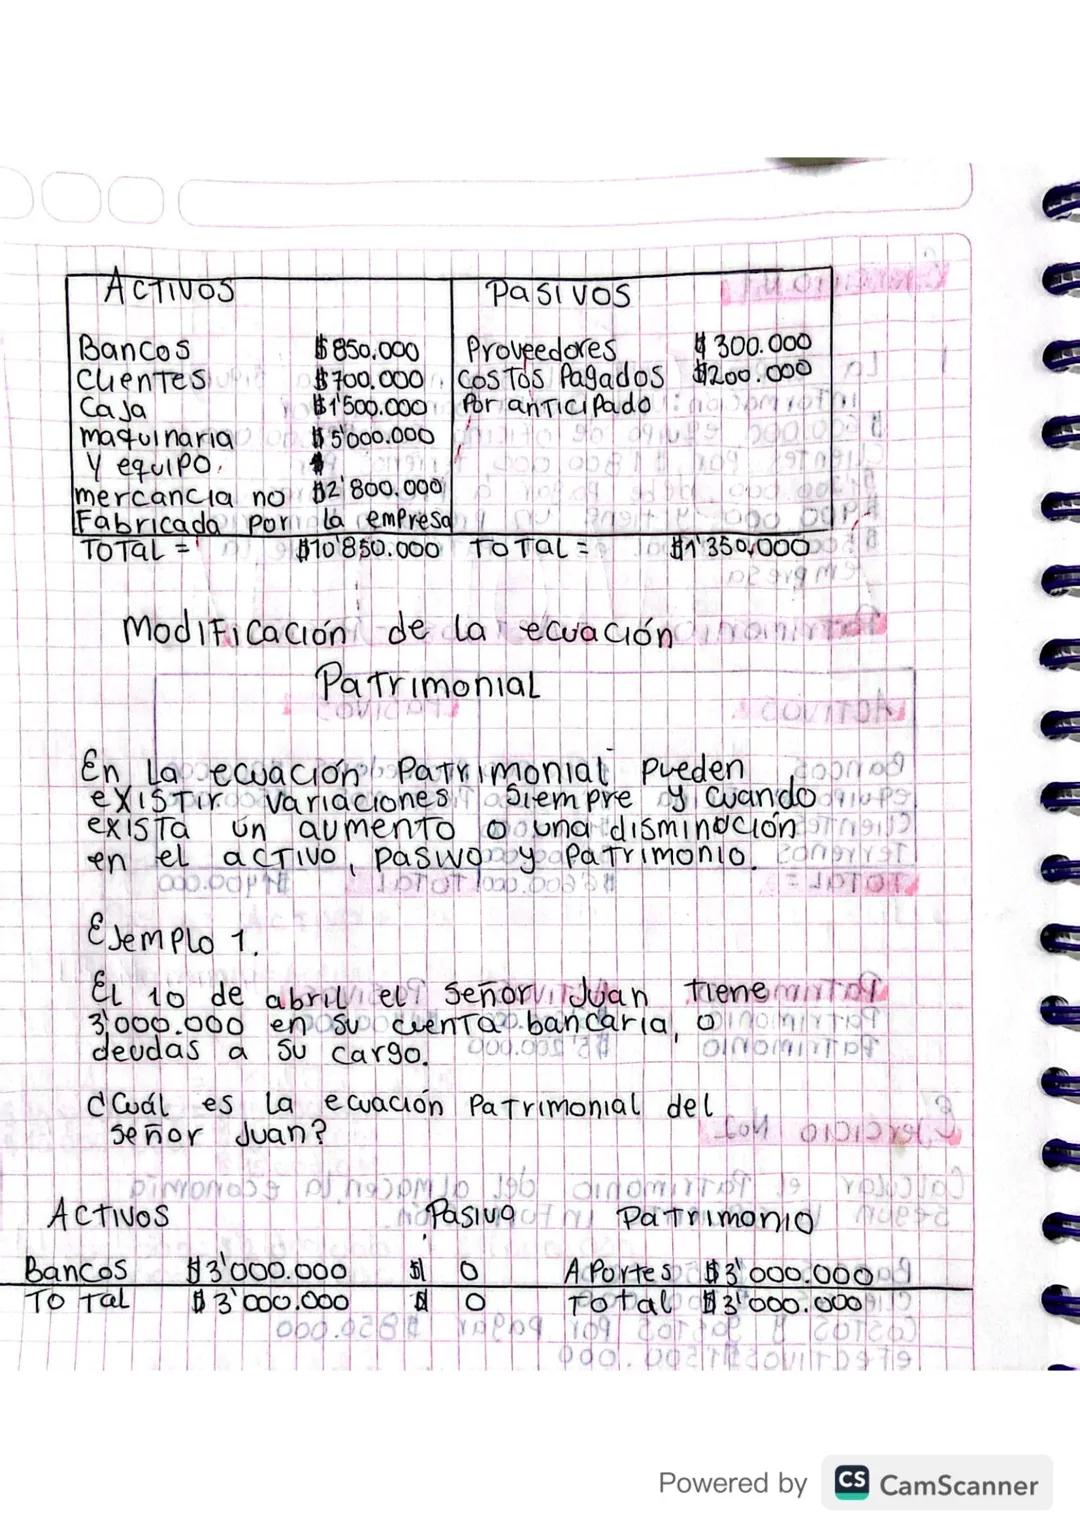 ACTIVOS PASIVOS
Bancos $850.000 Proveedores $300.000
Clientes $700.000 Costos Pagados $200.000
Caja $1'500.000 Por anticipado
maquinaria $5'000.000
y equipo. $
mercancia no $2'800.000
Fabricada por la empresa
Total = $10'850.000 Total = $1'350.000
Modificación de la ecuación
Patrimonial
En la ecuación Patrimonial pueden
existir variaciones siempre y cuando
exista un aumento o una disminución
en el activo, pasivo y Patrimonio.
Ejemplo 1.
El 10 de abril el señor Juan tiene
3'000.000 en su cuenta bancaria, 0
deudas a su cargo.
¿Cuál es la ecuación Patrimonial del
señor Juan?
Activos Pasivo Patrimonio
Bancos $3'000.000 $ 0 Aportes $3'000.000
Total $3'000.000 $ 0 Total $3'000.000
Powered by CS CamScanner